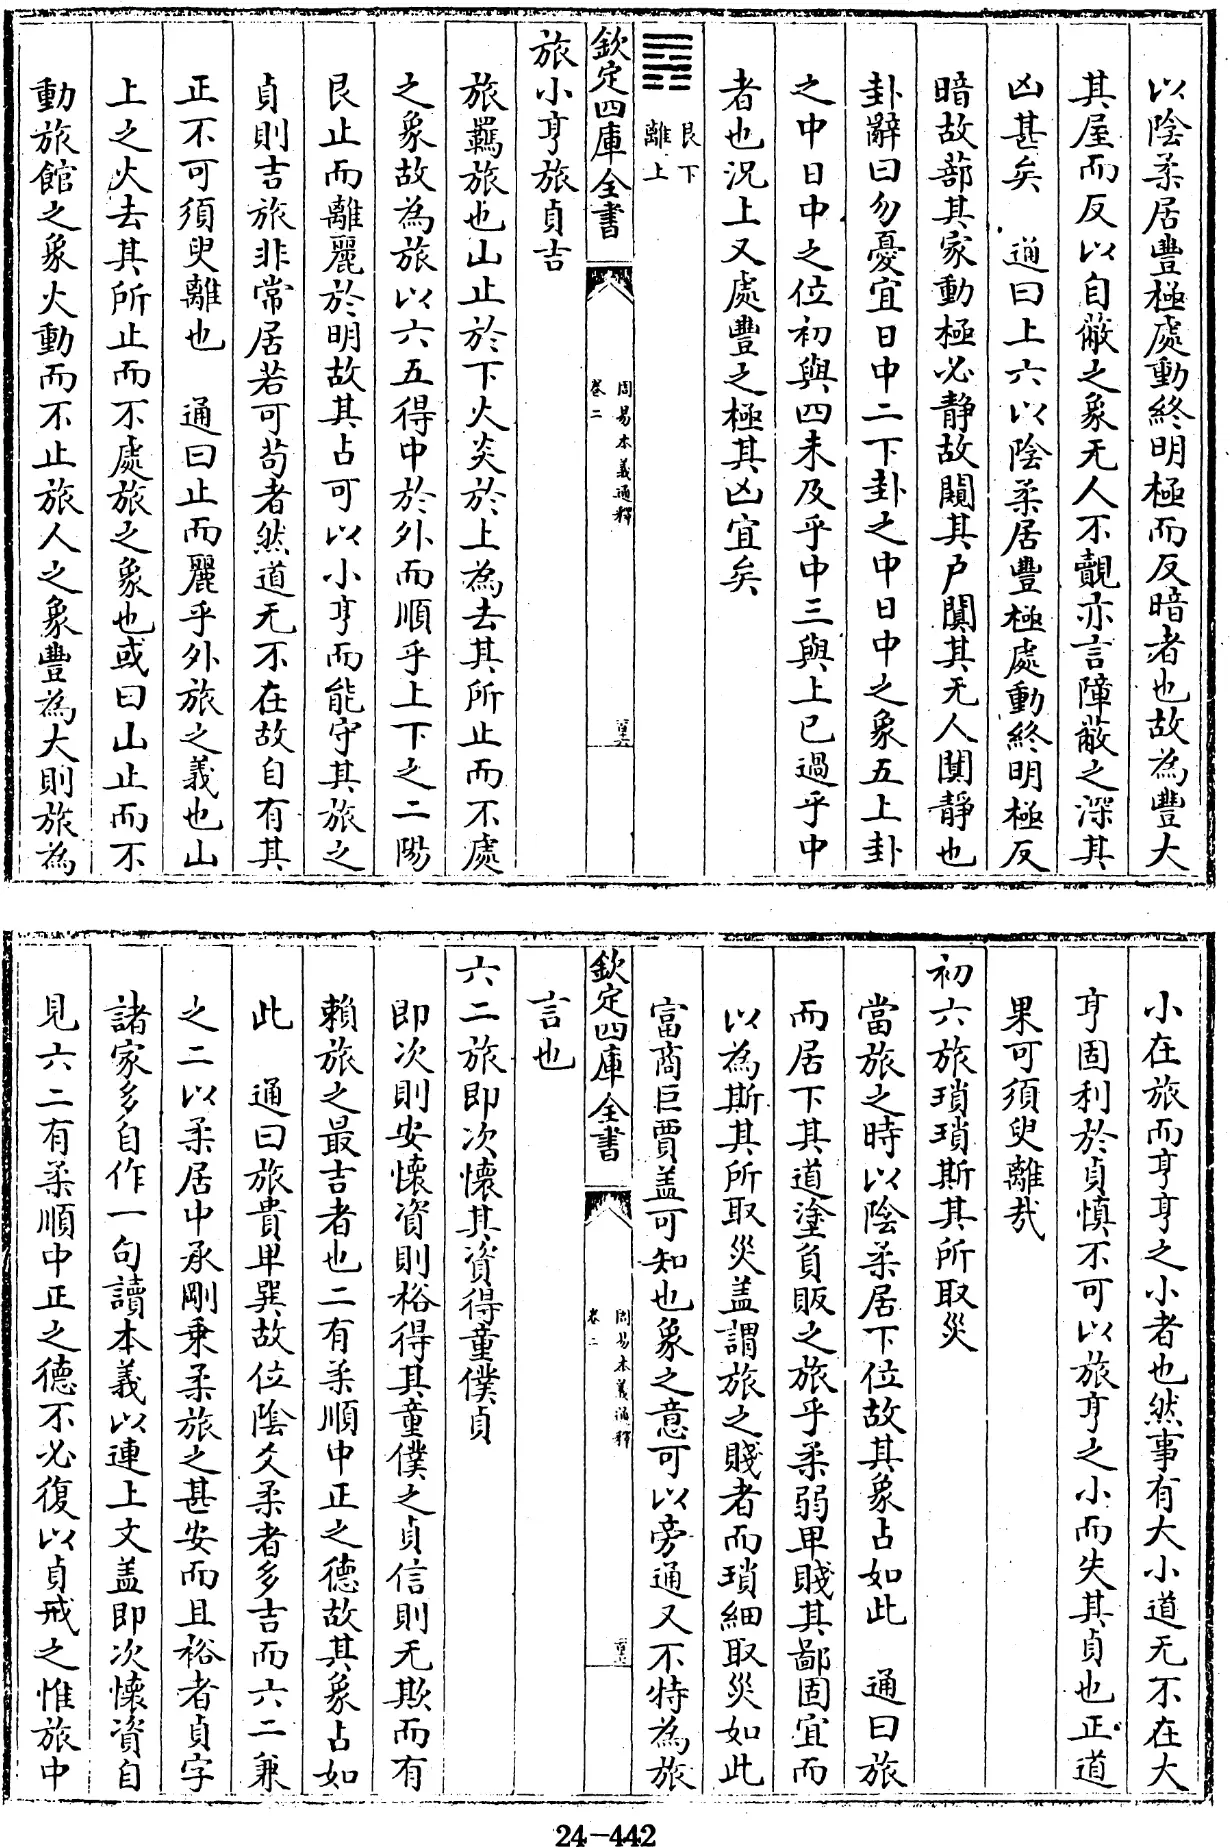 以陰柔居豐極處動終明極而反暗者也故為豐大
其屋而反以自蔽之象无人不覿亦言障蔽之深其
凶甚矣　通曰上六以陰柔居豐極處動終明極反
暗故蔀其家動極必靜故闚其户闃其无人闃靜也
卦辭曰勿憂宜日中二下卦之中日中之象五上卦
之中日中之位初與四未及乎中三與上已過乎中
者也況上又處豐之極其凶宜矣
艮下
離上
欽定四庫全書
周易本義通釋
卷二
旅小亨旅貞吉
旅羈旅也山止於下火炎於上為去其所止而不處
之象故為旅以六五得中於外而順乎上下之二陽
艮止而離麗於明故其占可以小亨而能守其旅之
貞則吉旅非常居若可苟者然道无不在故自有其
正不可須臾離也　通曰止而麗乎外旅之義也山
上之火去其所止而不處旅之象也或曰山止而不
動旅館之象火動而不止旅人之象豐為大則旅為
小在旅而亨亨之小者也然事有大小道无不在大
亨固利於貞慎不可以旅亨之小而失其貞也正道
果可須臾離㢤
初六旅瑣瑣斯其所取災
當旅之時以陰柔居下位故其象占如此　通曰旅
而居下其道塗負販之旅乎柔弱卑賤其鄙固宜而
以為斯其所取災盖謂旅之賤者而瑣細取災如此
富商巨賈盖可知也象之意可以旁通又不特為旅
欽定四庫全書
周易本義通釋
卷二
言也
六二旅即次懷其資得童僕貞
即次則安懷資則裕得其童僕之貞信則无欺而有
賴旅之最吉者也二有柔順中正之德故其象占如
此　通曰旅貴卑巽故位陰爻柔者多吉而六二兼
之二以柔居中承剛乘柔旅之甚安而且裕者貞字
諸家多自作一句讀本義以連上文盖即次懷資自
見六二有柔順中正之德不必復以貞戒之惟旅中
24-442